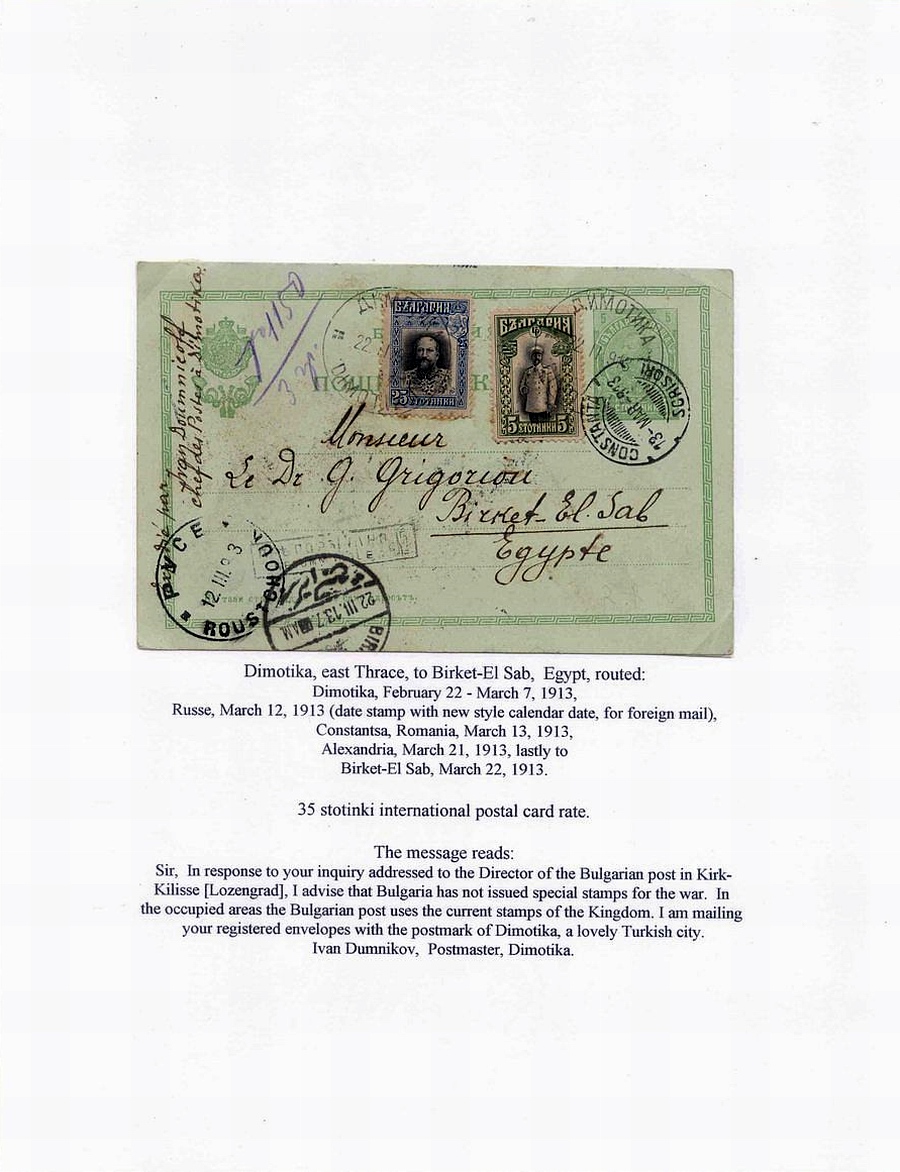 ДИМОТИКА
БЪЛГАРИЯ
25 СТОТИНКИ
БЪЛГАРИЯ
5 СТОТИНКИ 5
5 5
CONSTANTA
13-MAR-913
SCRISORI
Ivan Doumnicoff
chef des Postes à Dimotika
Monsieur
Le Dr G. Grigoriou
Birket-El. Sab
Egypte
ROUSTCHOUK
12.III.913
22.III.13.7 AM
Dimotika, east Thrace, to Birket-El Sab, Egypt, routed:
Dimotika, February 22 - March 7, 1913,
Russe, March 12, 1913 (date stamp with new style calendar date, for foreign mail),
Constantsa, Romania, March 13, 1913,
Alexandria, March 21, 1913, lastly to
Birket-El Sab, March 22, 1913.
35 stotinki international postal card rate.
The message reads:
Sir, In response to your inquiry addressed to the Director of the Bulgarian post in Kirk-
Kilisse [Lozengrad], I advise that Bulgaria has not issued special stamps for the war. In
the occupied areas the Bulgarian post uses the current stamps of the Kingdom. I am mailing
your registered envelopes with the postmark of Dimotika, a lovely Turkish city.
Ivan Dumnikov, Postmaster, Dimotika.